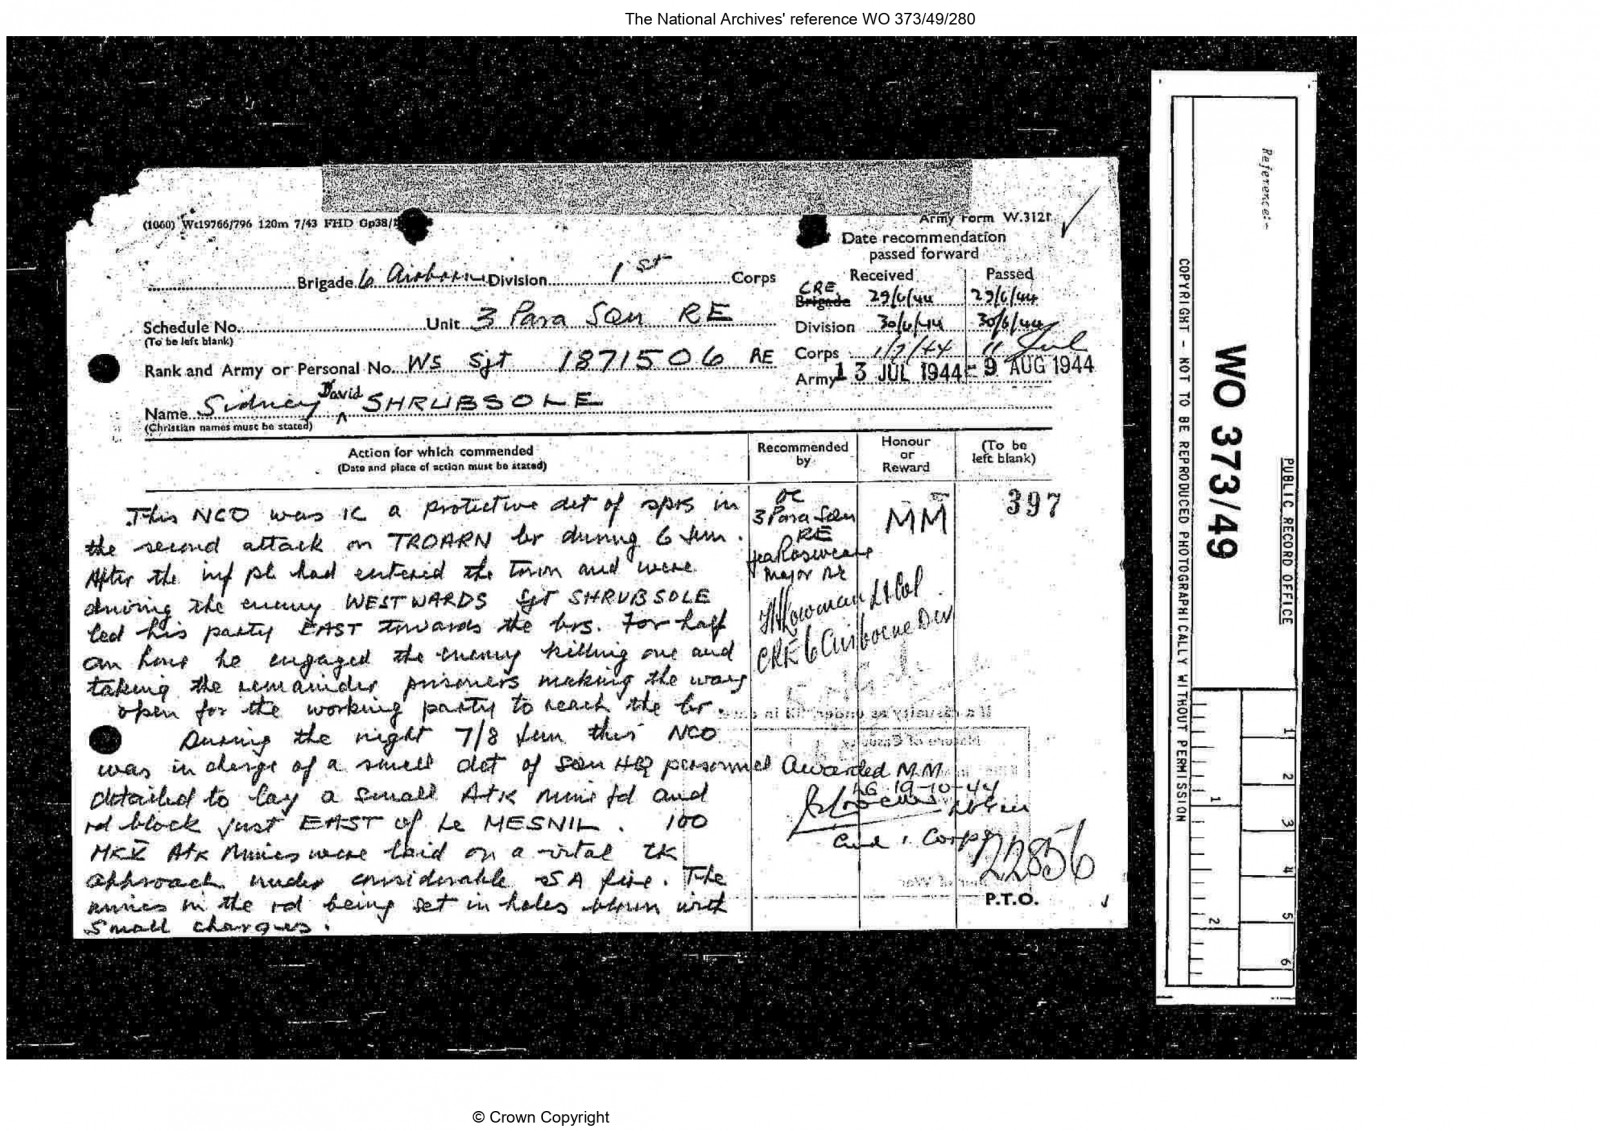 The National Archives' reference WO 373/49/280
(1060) Wt19766/796 120m 7/43 FHD Gp38/
Army Form W.3121
Date recommendation
passed forward
Brigade 6 Airborne Division 1st Corps
Received Passed
CRE
Brigade 29/6/44 29/6/44
Schedule No. Unit 3 Para Sqn RE
(To be left blank)
Division 30/6/44 30/6/44
Rank and Army or Personal No. WS Sjt 1871506 RE
Corps 1/7/44 11 Jul
Army 13 JUL 1944 - 9 AUG 1944
Name Sidney David SHRUBSOLE
(Christian names must be stated)
Action for which commended
(Date and place of action must be stated)
Recommended
by
Honour
or
Reward
(To be
left blank)
This NCO was IC a protective det of sprs in
the second attack on TROARN br during 6 Jun.
After the inf pl had entered the town and were
driving the enemy WESTWARDS Sjt SHRUBSOLE
led his party EAST towards the brs. For half
an hour he engaged the enemy killing one and
taking the remainder prisoners making the way
open for the working party to reach the br.
During the night 7/8 Jun this NCO
was in charge of a small det of Sqn HQ personnel
detailed to lay a small A+K mine fd and
rd block just EAST of Le MESNIL. 100
MKV Atk Mines were laid on a vital tk
approach under considerable SA fire. The
mines in the rd being set in holes blown with
small charges.
OC
3 Para Sqn
RE
Major RE
Lt Col
CRE 6 Airborne Div
MM
397
Awarded MM
LG 19-10-44
Lt Gen
Comd 1 Corps
22856
P.T.O.
Reference:-
PUBLIC RECORD OFFICE
WO 373/49
COPYRIGHT - NOT TO BE REPRODUCED PHOTOGRAPHICALLY WITHOUT PERMISSION
1
2
3
4
5
6
1
2
© Crown Copyright